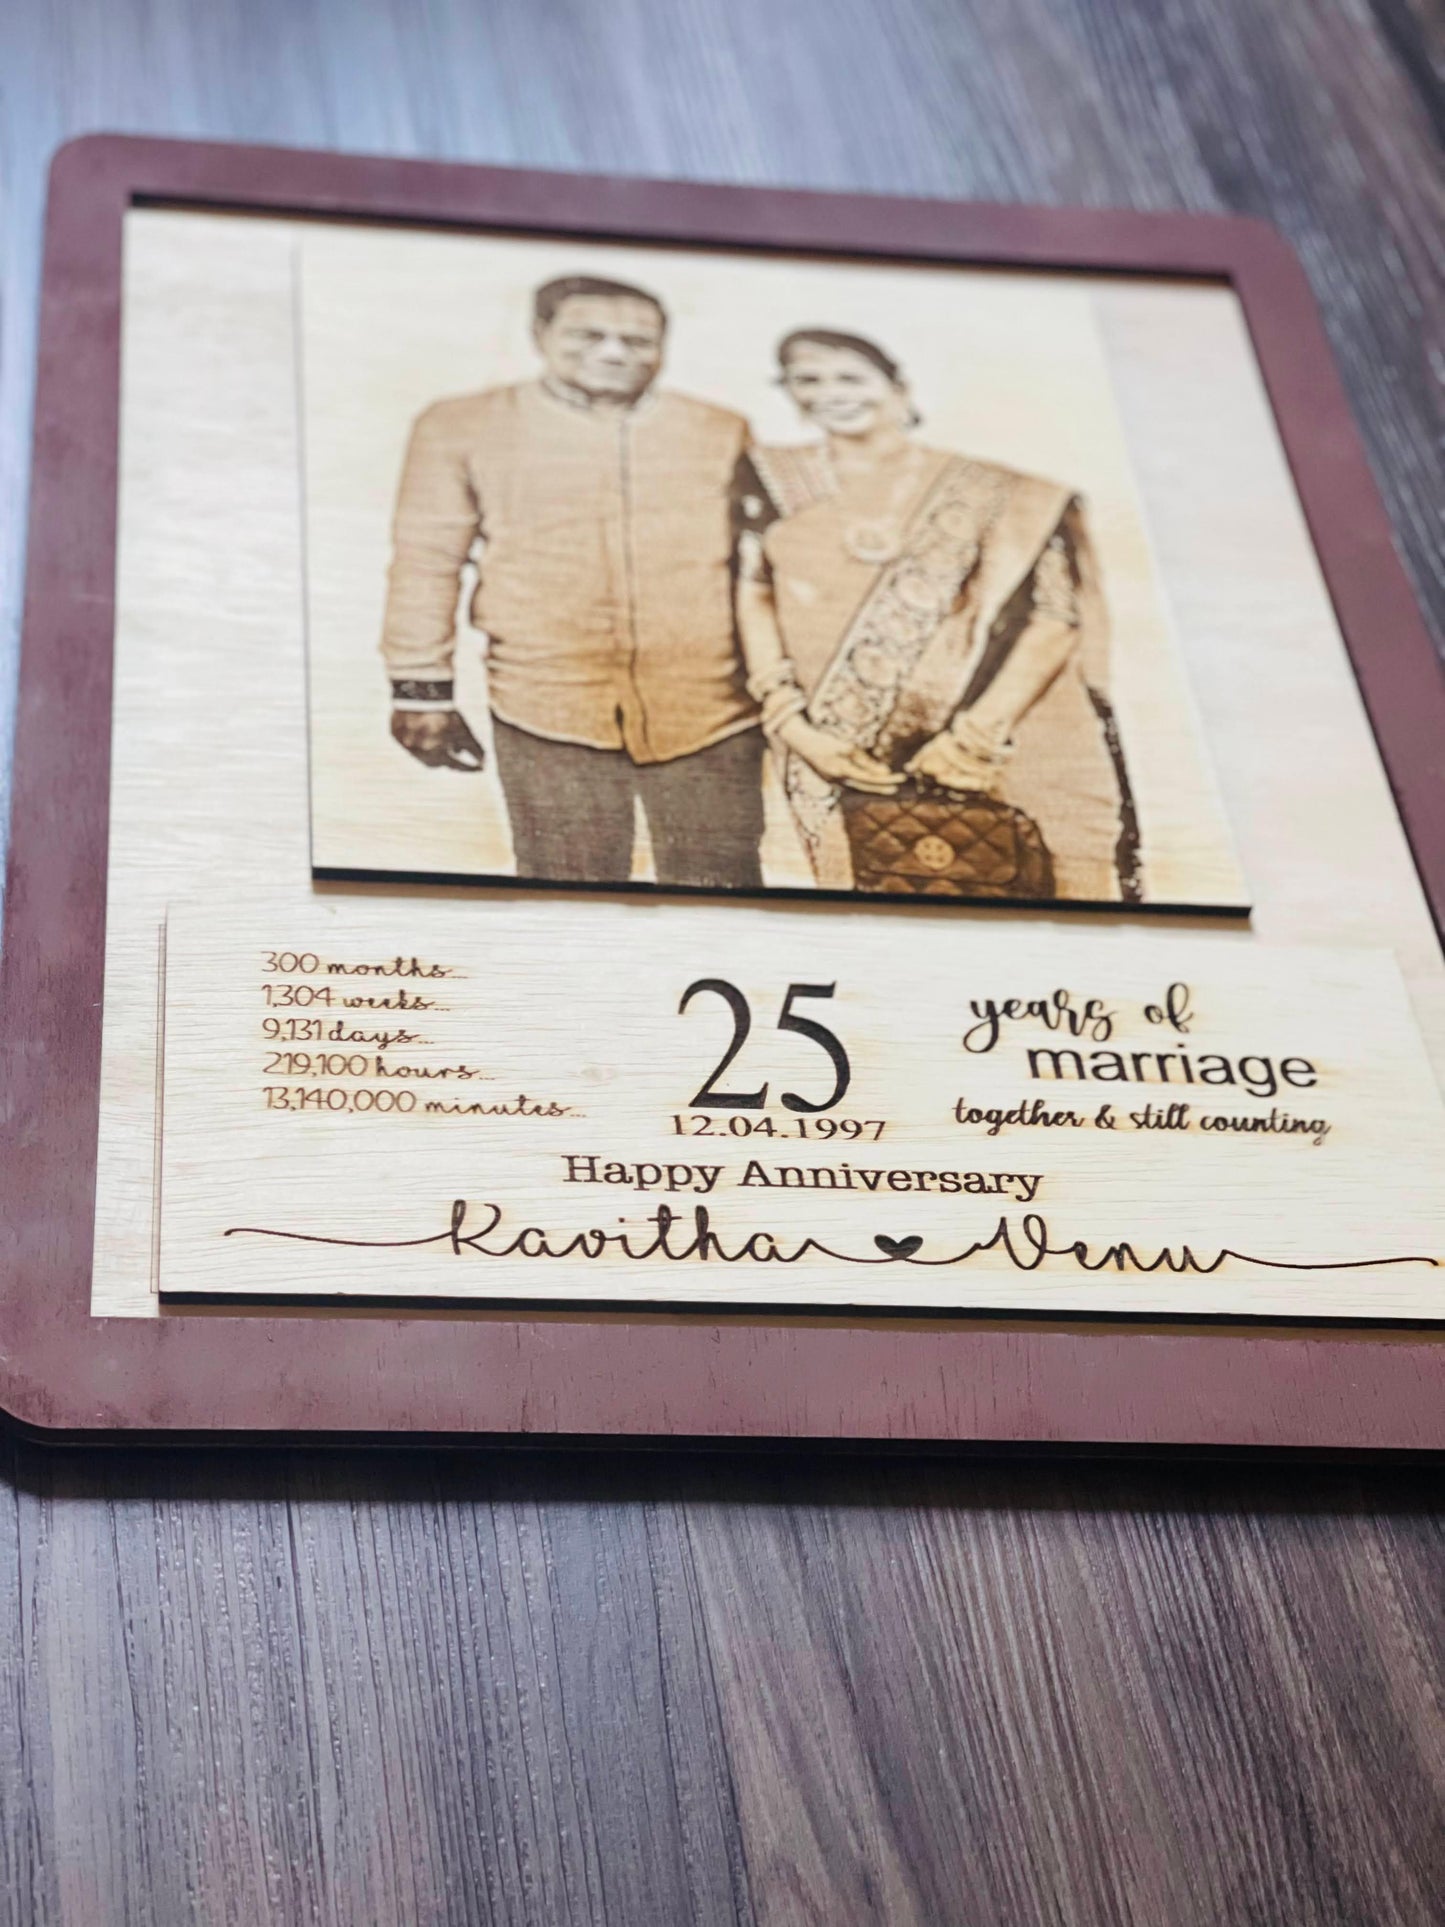 300 months...
1,304 weeks...
9,131 days...
219,100 hours...
13,140,000 minutes...
25
12.04.1997
years of
marriage
together & still counting
Happy Anniversary
Kavitha Venu